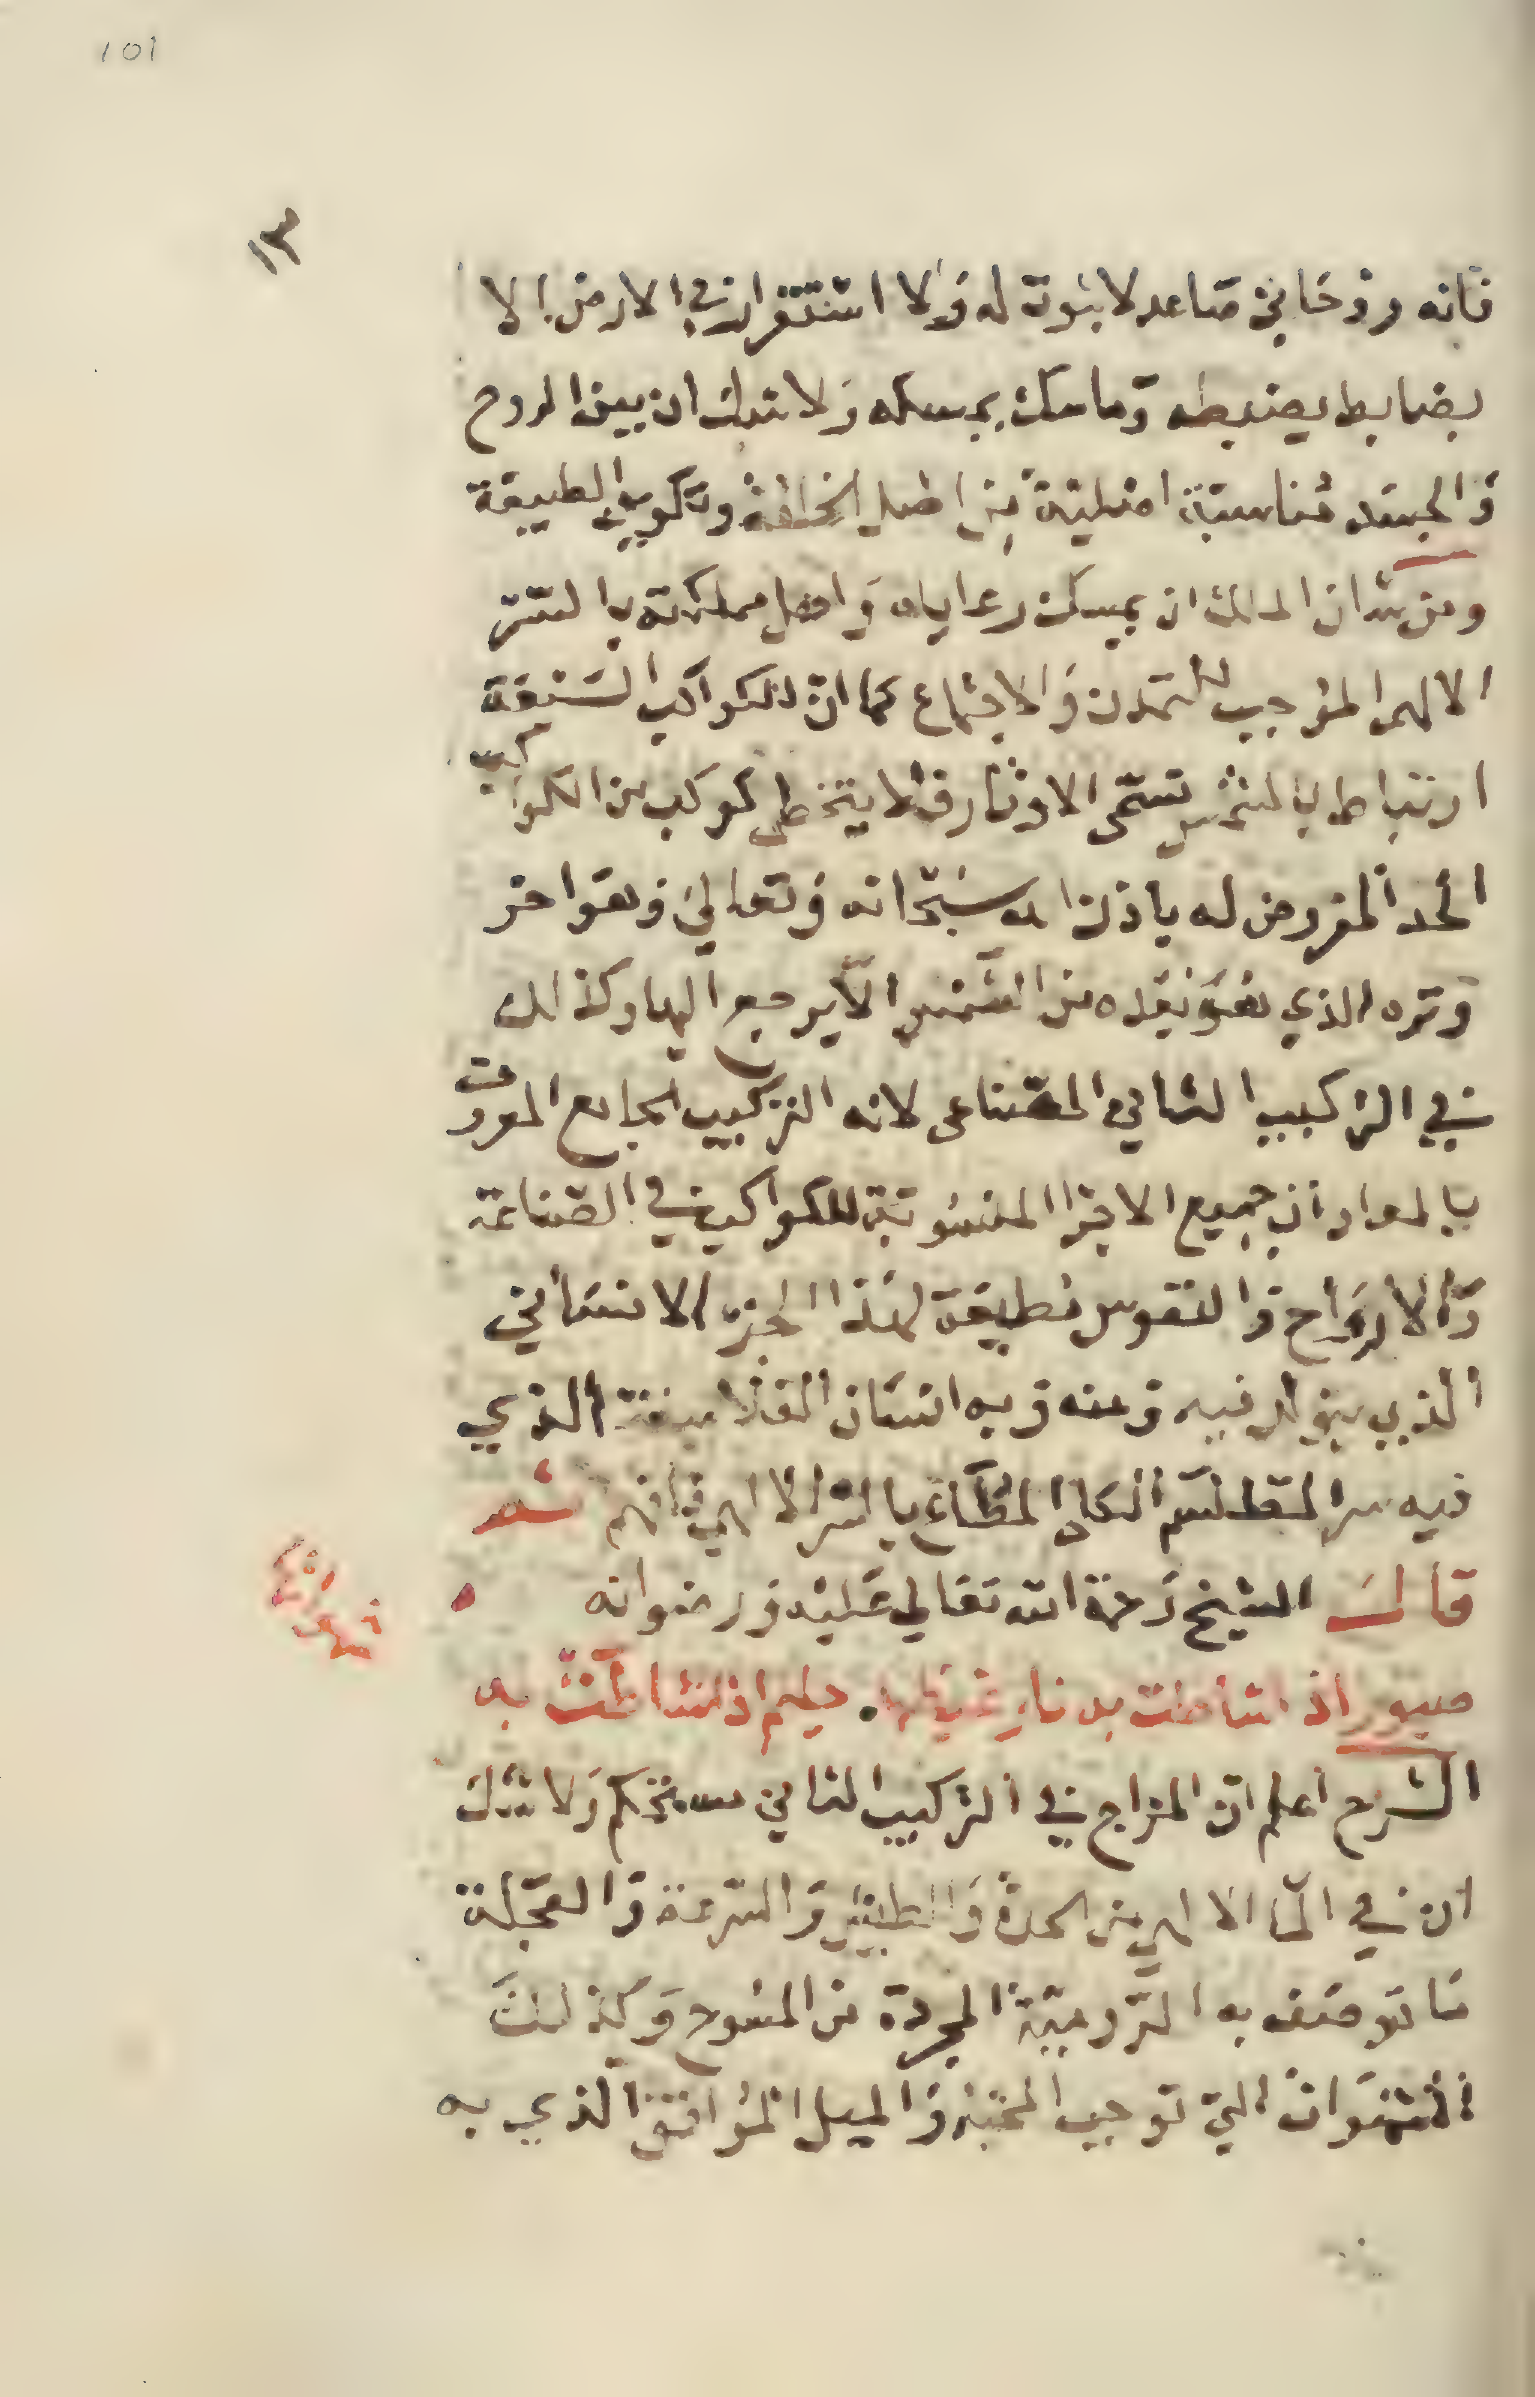 101
١٣
فانه روحاني صاعد لا ثبوت له ولا استقرار في الارض الا
بضابط يضبطه وماسك يمسكه ولا شك ان بين الروح
والجسد مناسبة اصلية من اصل الخلقة وتكوين الطبيعة
ومن شان المالك ان يمسك رعاياه واهل مملكته بالستر
الالهي الموجب للتمدن والاجتماع كما ان للكواكب السبعة
ارتباط بالشمس تسمى الاوتار فلا يتخطى كوكب من الكواكب
الحد المفروض له باذن الله سبحانه وتعالى وهو اخر
وتره الذي هو بعده من الشمس الا يرجع اليها وكذلك
في التركيب الثاني الصناعي لانه التركيب الجامع المعروف
بالموازن جميع الاجزا المنسوبة للكواكب في الصناعة
والارواح والنفوس مطيعة لهذا الجزء الانساني
الذي يتولد فيه ومنه وبه انسان الفلاسفة الذي
فيه سر الطلسم المطاع بالسر الالهي فافهم شعر
قال الشيخ رحمة الله تعالى عليه ورضوانه
صبور اذا شاطت به نار غيظها حليم اذا شاطت به
الشرح اعلم ان المزاج في التركيب الثاني مستحكم ولا شك
ان في الما الالهي من الحدة والطيش والسرعة والعجلة
ما توصف به الروحية المجردة من المسوح وكذلك
الشهوات التي توجب المحبة والميل الموافق الذي به